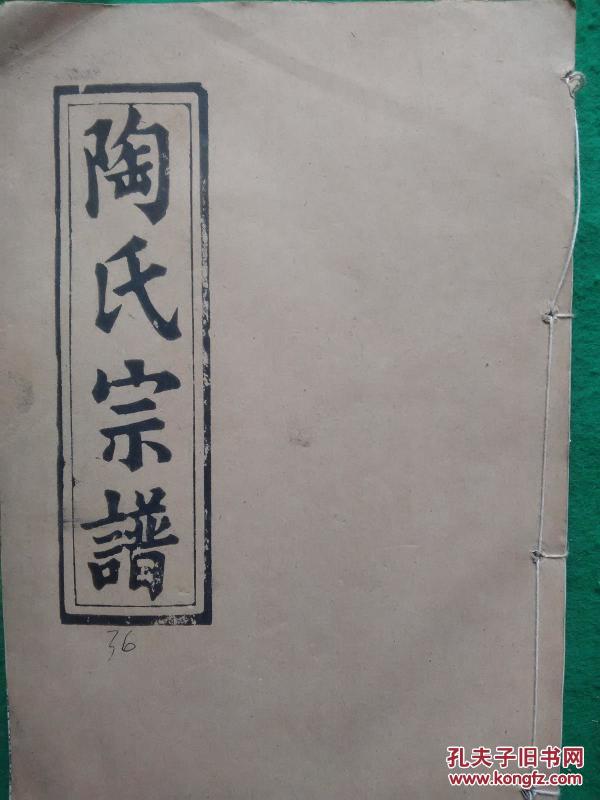 陶氏宗譜
36
孔夫子旧书网
www.kongfz.com